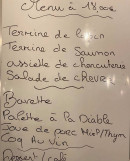 Menu à 18,00€
Terrine de lapin
Terrine de Saumon
assiette de charcuterie
Salade de chèvre
Bavette
Palette à la Diable
Joue de porc Miel/Thym
Coq Au Vin
Dessert / café